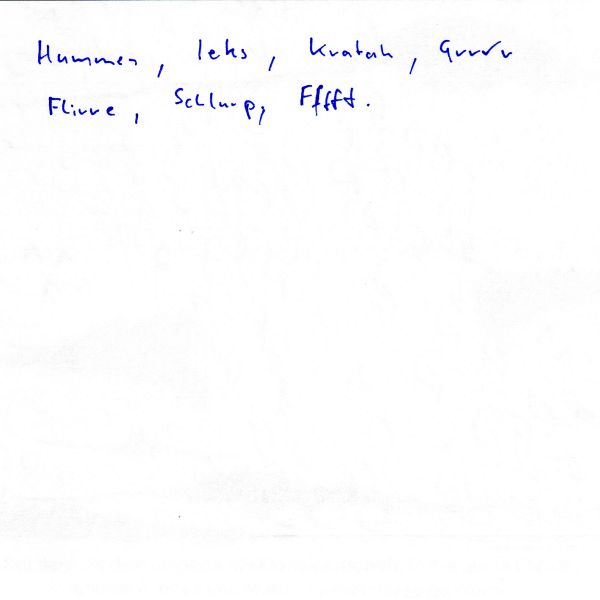 Hummen, leks, kratak, Grrrr
Flirre, Schlurp, Fffft.